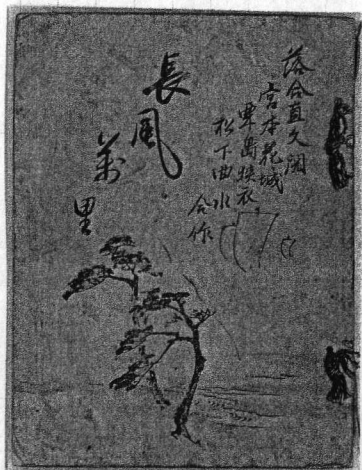 落合直文閲
宮本花城
粟島狹衣
松下曲水
合作
長風
萬里